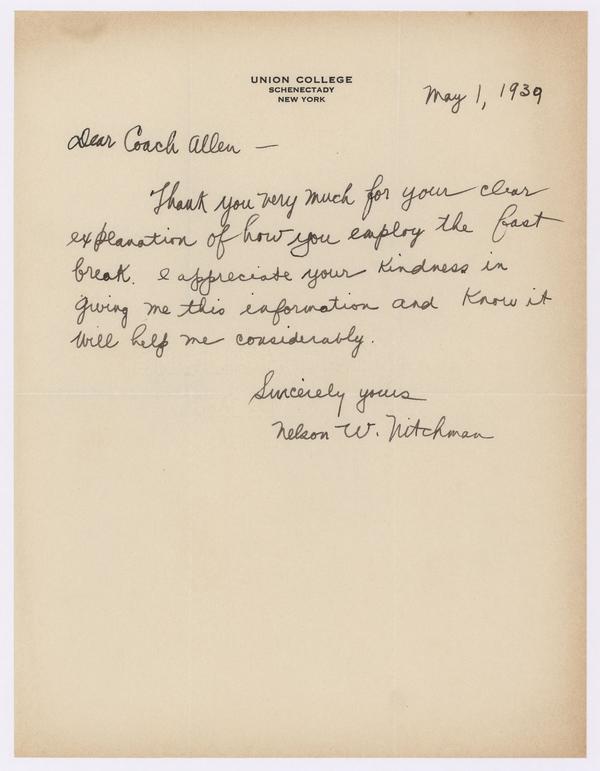 UNION COLLEGE
SCHENECTADY
NEW YORK
May 1, 1939
Dear Coach Allen —
Thank you very much for your clear
explanation of how you employ the fast
break. I appreciate your kindness in
giving me this information and know it
will help me considerably.
Sincerely yours
Nelson W. Nitchman